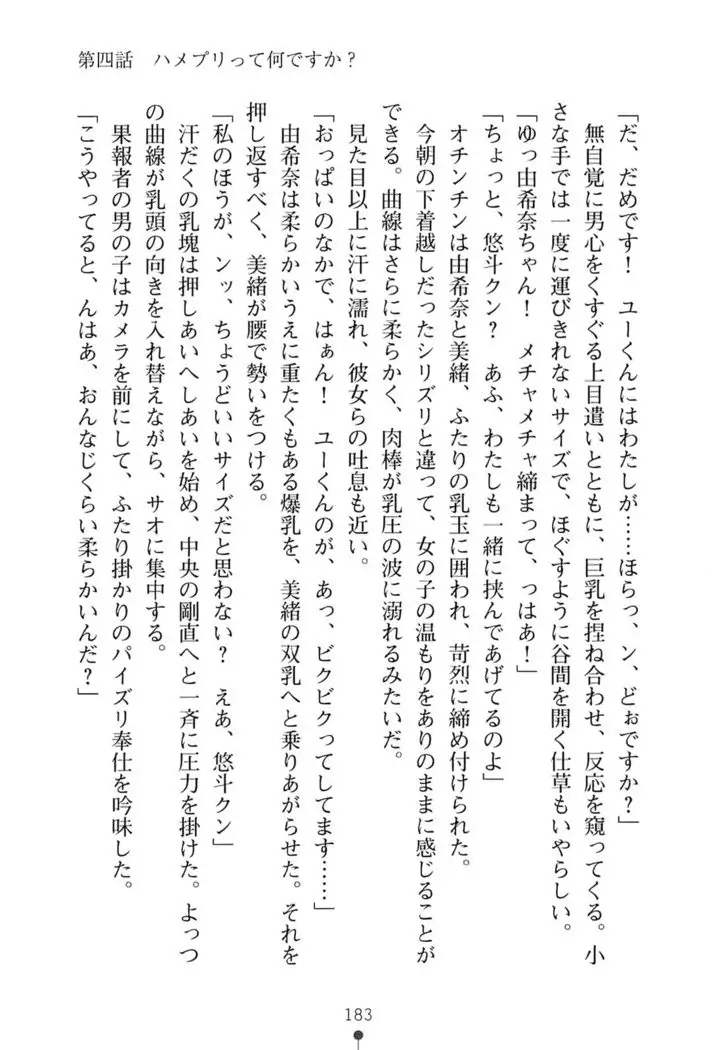 第四話　ハメプリって何ですか？
「だ、だめです！　ユーくんにはわたしが……ほらっ、ン、どぉですか？」
無自覚に男心をくすぐる上目遣いとともに、巨乳を捏ね合わせ、反応を窺ってくる。小
さな手では一度に運びきれないサイズで、ほぐすように谷間を開く仕草もいやらしい。
「ゆっ由希奈ちゃん！　メチャメチャ締まって、っはぁ！」
「ちょっと、悠斗クン？　あふ、わたしも一緒に挟んであげてるのよ」
オチンチンは由希奈と美緒、ふたりの乳玉に囲われ、苛烈に締め付けられた。
今朝の下着越しだったシリズリと違って、女の子の温もりをありのままに感じることが
できる。曲線はさらに柔らかく、肉棒が乳圧の波に溺れるみたいだ。
見た目以上に汗に濡れ、彼女らの吐息も近い。
「おっぱいのなかで、はぁん！　ユーくんのが、あっ、ビクビクってしてます……」
由希奈は柔らかいうえに重たくもある爆乳を、美緒の双乳へと乗りあがらせた。それを
押し返すべく、美緒が腰で勢いをつける。
「私のほうが、ンッ、ちょうどいいサイズだと思わない？　えぁ、悠斗クン」
汗だくの乳塊は押しあいへしあいを始め、中央の剛直へと一斉に圧力を掛けた。よっつ
の曲線が乳頭の向きを入れ替えながら、サオに集中する。
果報者の男の子はカメラを前にして、ふたり掛かりのパイズリ奉仕を吟味した。
「こうやってると、んはあ、おんなじくらい柔らかいんだ？」
183